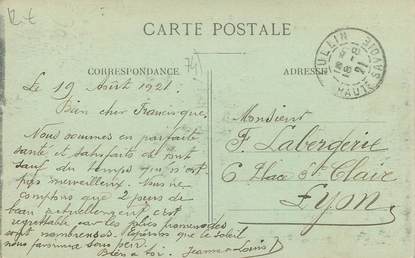 CARTE POSTALE
CORRESPONDANCE
ADRESSE
LULLIN
18-8
21
HAUTE-SAVOIE
74
Le 19 Août 1921.
Bien cher Francisque,
Nous sommes en parfaite
santé et satisfaits de tout
sauf du temps qui n'est
pas merveilleux. Nous ne
comptons que 2 jours de
beau actuellement c'est
regrettable car les jolies promenades
sont nombreuses. Espérons que le soleil
nous favorisera sous peu.
Bien à toi. Jeanne & Louis
Monsieur
F. Laberderie
6 Place St Clair
Lyon